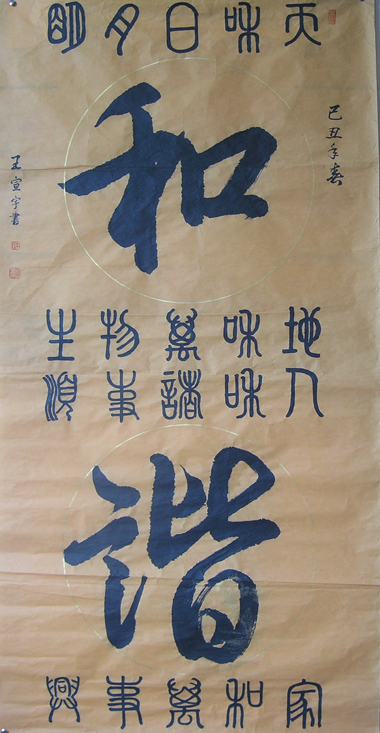 天和日月明
己丑年春
和
地和萬物生
人和諸事順
谐
家和萬事興
王宣宇書